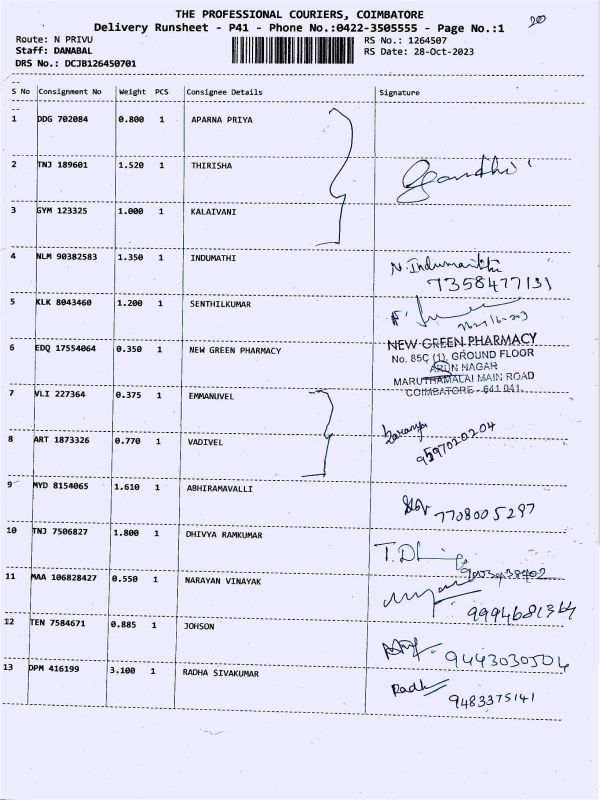 THE PROFESSIONAL COURIERS, COIMBATORE
20
Delivery Runsheet - P41 - Phone No.:0422-3505555 - Page No.:1
Route: N PRIVU
RS No.: 1264507
Staff: DANABAL
RS Date: 28-Oct-2023
DRS No.: DCJB126450701
S No Consignment No Weight PCS Consignee Details Signature
1 DDG 702084 0.800 1 APARNA PRIYA
2 TNJ 189601 1.520 1 THIRISHA
Gandhi
3 GYM 123325 1.000 1 KALAIVANI
4 NLM 90382583 1.350 1 INDUMATHI
N. Indumathi
7358477131
5 KLK 8043460 1.200 1 SENTHILKUMAR
6 EDQ 17554064 0.350 1 NEW GREEN PHARMACY
NEW GREEN PHARMACY
No. 85C (1), GROUND FLOOR
ARUN NAGAR
MARUTHAMALAI MAIN ROAD
COIMBATORE - 641 041.
7 VLI 227364 0.375 1 EMMANUVEL
8 ART 1873326 0.770 1 VADIVEL
Saranya
9597020204
9 MYD 8154065 1.610 1 ABHIRAMAVALLI
7708005297
10 TNJ 7506827 1.800 1 DHIVYA RAMKUMAR
11 MAA 106828427 0.550 1 NARAYAN VINAYAK
12 TEN 7584671 0.885 1 JOHSON
9443030504
13 DPM 416199 3.100 1 RADHA SIVAKUMAR
Radh
9483375141